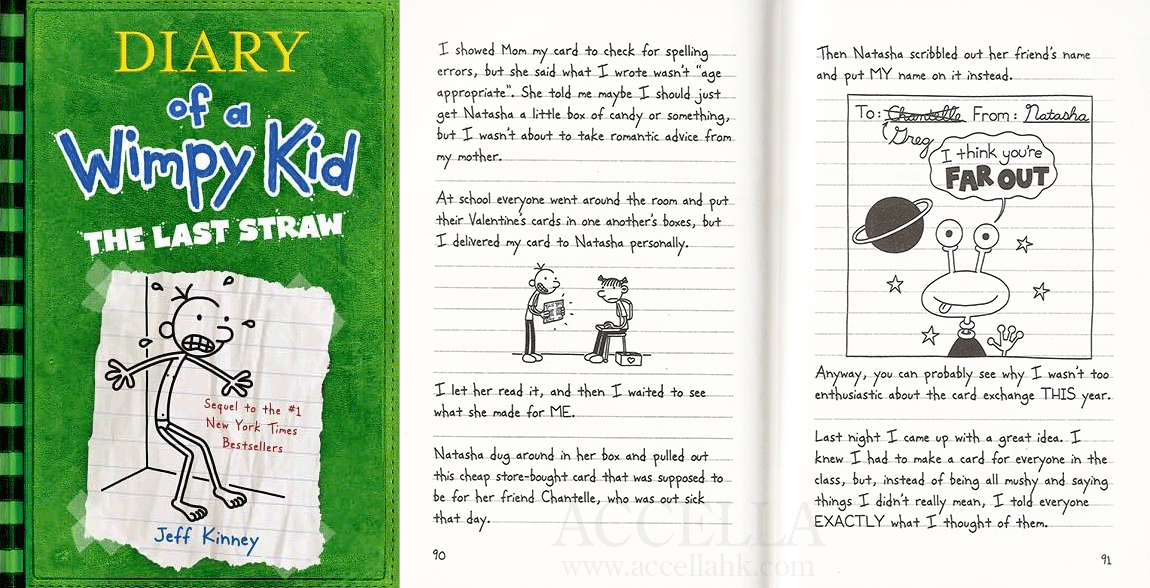 DIARY
of a
Wimpy Kid
THE LAST STRAW
Sequel to the #1
New York Times
Bestsellers
Jeff Kinney
I showed Mom my card to check for spelling
errors, but she said what I wrote wasn't "age
appropriate". She told me maybe I should just
get Natasha a little box of candy or something,
but I wasn't about to take romantic advice from
my mother.
At school everyone went around the room and put
their Valentine's cards in one another's boxes, but
I delivered my card to Natasha personally.
I let her read it, and then I waited to see
what she made for ME.
Natasha dug around in her box and pulled out
this cheap store-bought card that was supposed to
be for her friend Chantelle, who was out sick
that day.
90
Then Natasha scribbled out her friend's name
and put MY name on it instead.
To: Chantelle From: Natasha
Greg
I think you're
FAR OUT
Anyway, you can probably see why I wasn't too
enthusiastic about the card exchange THIS year.
Last night I came up with a great idea. I
knew I had to make a card for everyone in the
class, but, instead of being all mushy and saying
things I didn't really mean, I told everyone
EXACTLY what I thought of them.
91
ACCELLA
www.accellahk.com